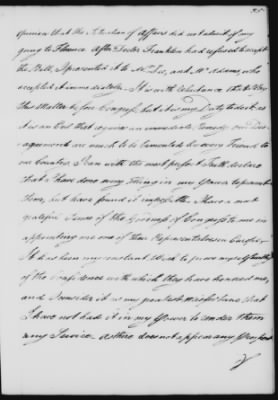 35
opinion that the situation of Affairs did not admit of my
going to Florence After Doctor Franklin had refused to accept
the Bill, I presented it to Mr Lee, and Mr Adams, who
accepted it immediately. It is with Reluctance that I lay
this Matter before Congress, but it is my Duty to do it as
it is an Evil that requires an immediate remedy our Dis-
agreements are much to be lamented by every Friend to
our Country. I can with the most perfect Truth declare
that I have done every thing in my Power to prevent
them, but have found it impossible. I have a most
grateful Sense of the Goodness of Congress to me in
appointing me one of their Representatives in Europe.
It has been my constant wish to prove myself worthy
of the Confidence with which they have honored me,
and I consider it as my greatest misfortune that
I have not had it in my Power to render them
any Service. as there does not appear any Prospect